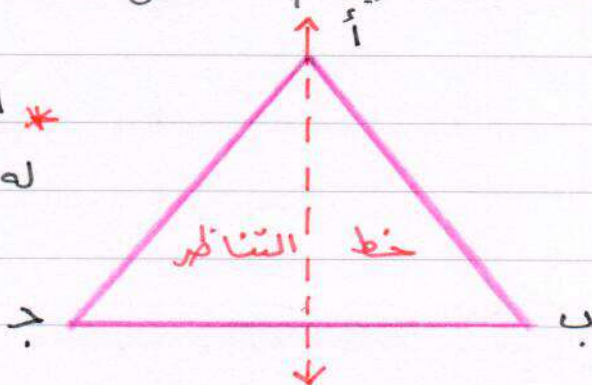 أ
* 
له
خط التناظر
ب
ج